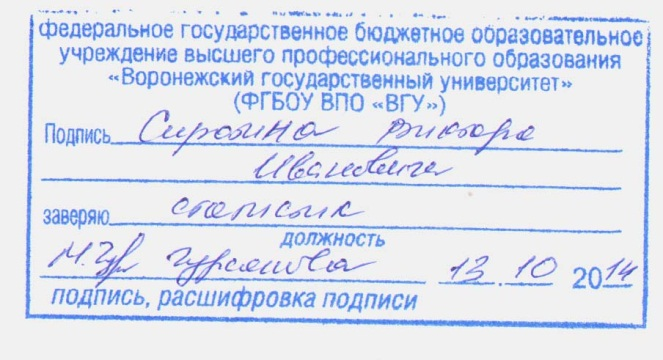 федеральное государственное бюджетное образовательное
учреждение высшего профессионального образования
«Воронежский государственный университет»
(ФГБОУ ВПО «ВГУ»)
Подпись Сиротина Виктора
Ивановича
заверяю
должность
13.10 2014
подпись, расшифровка подписи